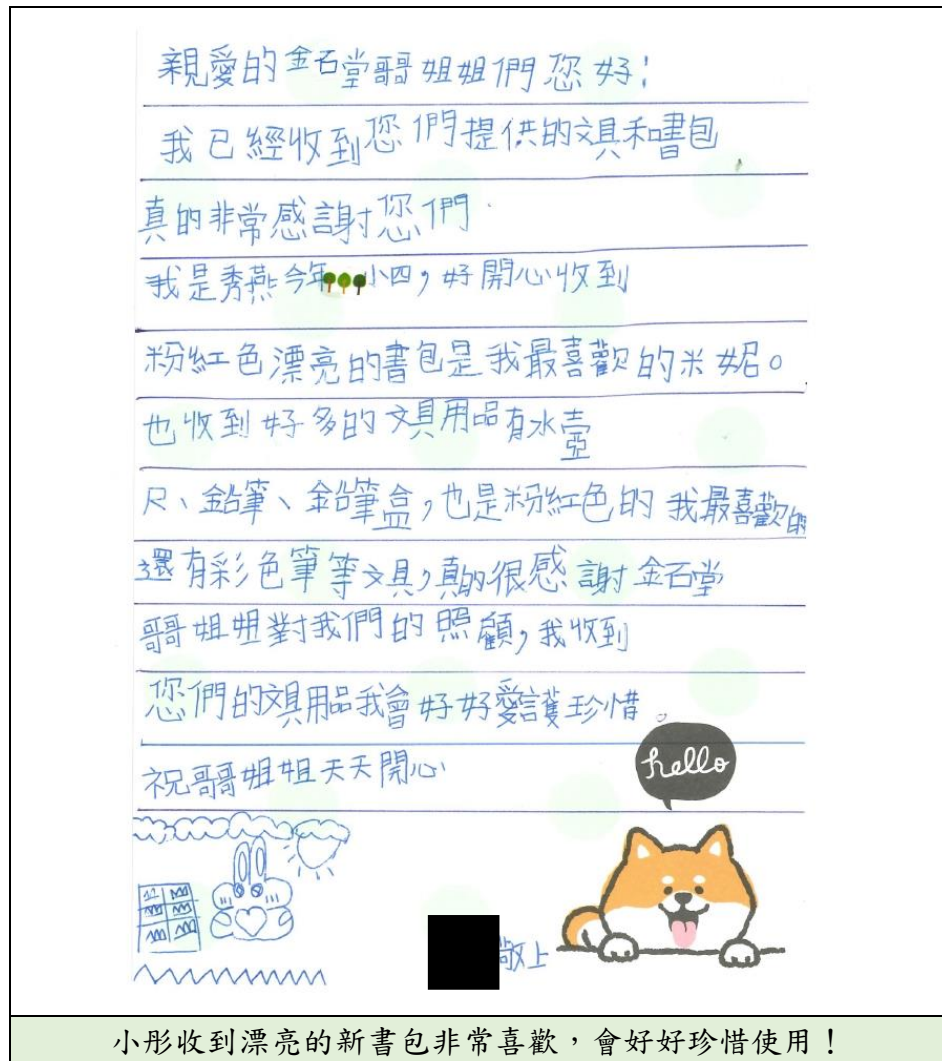 親愛的金石堂哥哥姐姐們您好!
我已經收到您們提供的文具和書包
真的非常感謝您們
我是秀燕今年小四,好開心收到
粉紅色漂亮的書包是我最喜歡的米妮。
也收到好多的文具用品有水壺
尺、鉛筆、鉛筆盒,也是粉紅色的我最喜歡的
還有彩色筆等文具,真的很感謝金石堂
哥哥姐姐對我們的照顧,我收到
您們的文具用品我會好好愛護珍惜。
祝哥哥姐姐天天開心
hello
敬上
小彤收到漂亮的新書包非常喜歡,會好好珍惜使用!